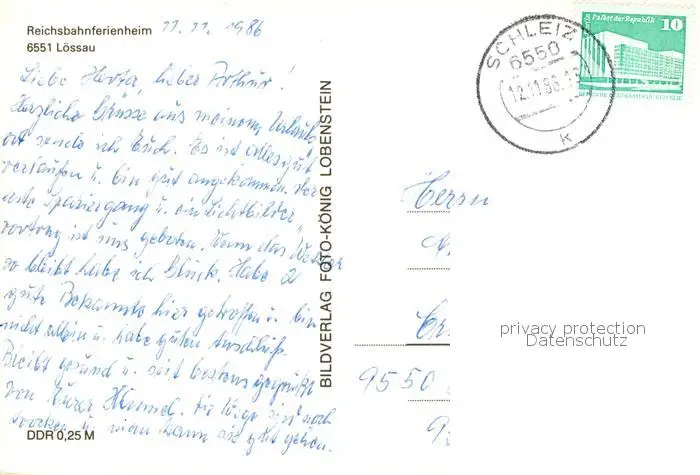 Reichsbahnferienheim
6551 Lössau
11.11.1986
Liebe Herta, lieber Arthur!
Herzliche Grüsse aus meinem Urlaubs-
ort sende ich Euch. Es ist alles gut
verlaufen u. bin gut angekommen. Der
erste Spaziergang u. ein Lichtbilder-
vortrag ist uns geboten. Wenn das Wetter
so bleibt habe ich Glück. Habe 2
gute Bekannte hier getroffen u. bin
nicht allein u. habe guten Anschluß.
Bleibt gesund u. seit bestens gegrüßt
von Eurer
noch
trocken u. man kann sie gut gehen.
DDR 0,25 M
BILDVERLAG FOTO-KÖNIG LOBENSTEIN
SCHLEIZ
6550
12.11.86
K
Berlin Palast der Republik 10
DEUTSCHE DEMOKRATISCHE REPUBLIK
Herrn
9550
privacy protection
Datenschutz